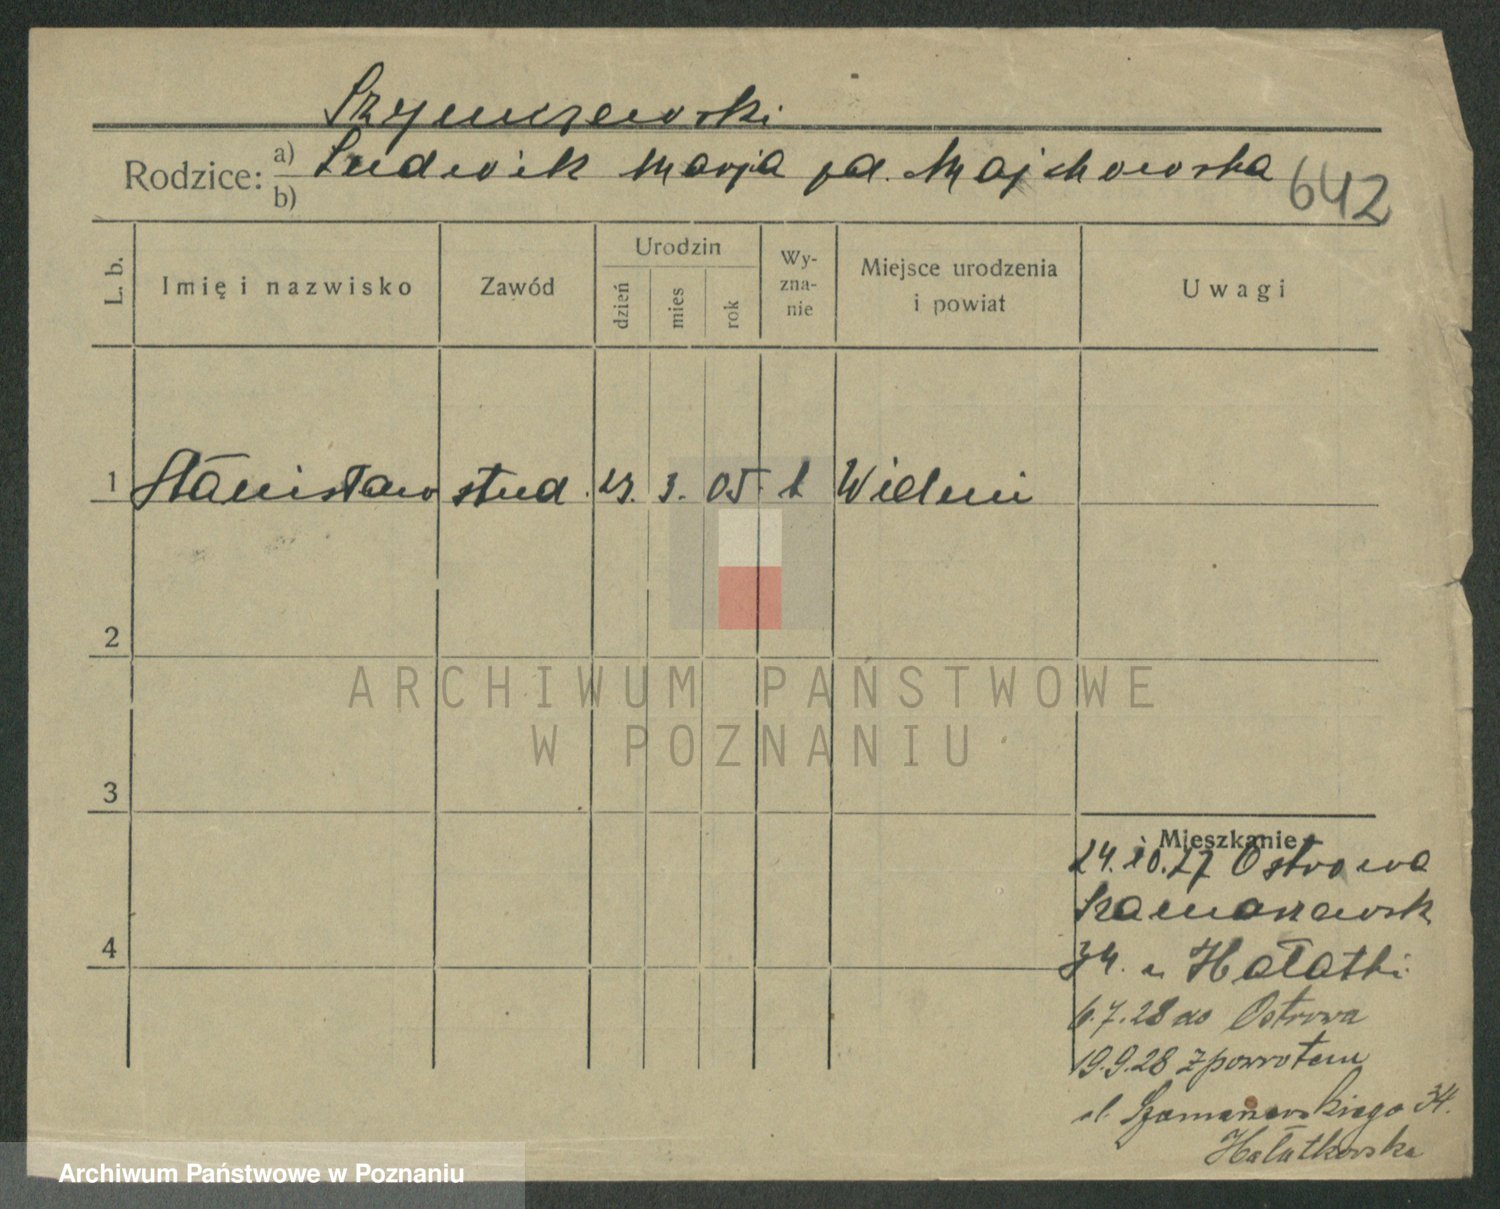 Szymczewski
Rodzice: a) Ludwik Marja
b)
642
L. b. Imię i nazwisko Zawód Urodzin dzień mies rok Wy-zna-nie Miejsce urodzenia i powiat Uwagi
1 Stanisław stud. 3. 05
2
3
4
Mieszkanie
24.10.27 Ostrowa
34. u Hałatki
6.7.28 do Ostrowa
19.9.28 z powrotem
ul. Szamarzewskiego 34.
Hałatkowska
ARCHIWUM PAŃSTWOWE
W POZNANIU
Archiwum Państwowe w Poznaniu